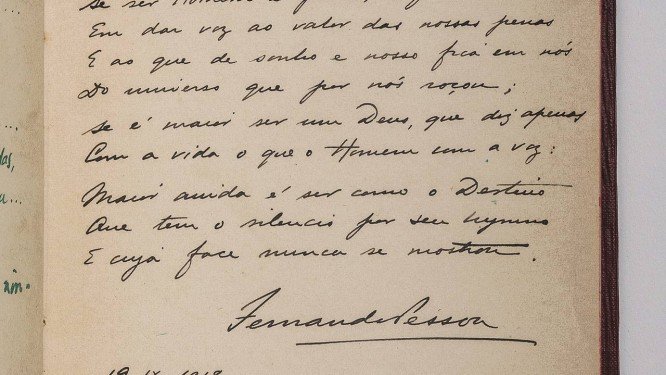 Se ser Homem é
Em dar voz ao valor das nossas penas
E ao que de sonho e nosso fica em nós
Do universo que por nós roçou;
Se é maior ser um Deus, que diz apenas
Com a vida o que o Homem com a voz:
Maior ainda é ser como o Destino
Que tem o silencio por seu hymno
E cuja face nunca se mostrou.
Fernando Pessoa
19
das,
a...
im.